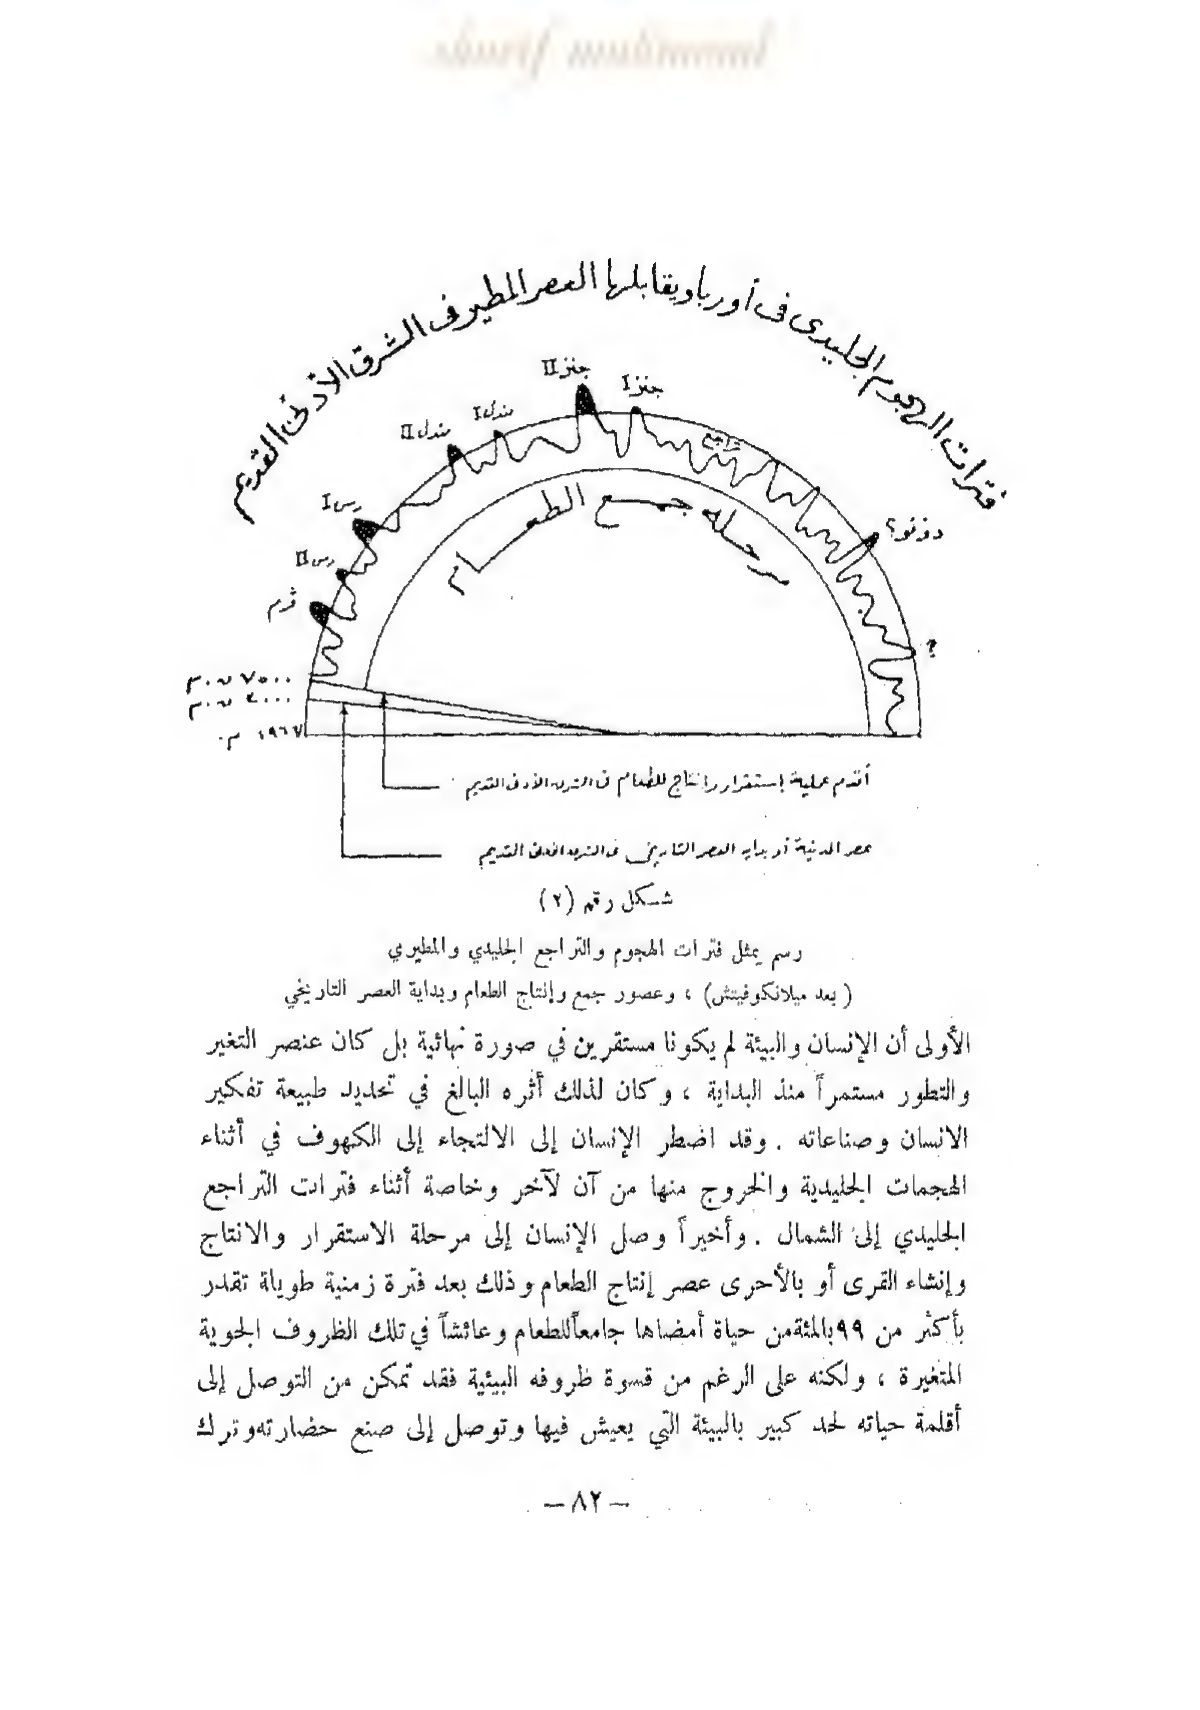 فترات الهجوم الجليدى فى أوربا ويقابلها العصر المطير فى الشرق الأدنى القديم
جنز II
جنز I
مندل I
مندل II
تراجع
رس I
رس II
ڤرم
دونو؟
؟
مرحلة جمع الطعام
٧٥٠٠ ق.م
٣٠٠٠ ق.م
١٩٦٧ م.
أقدم عملية إستقرار وإنتاج للطعام فى الشرق الأدنى القديم
عصر المدنية أو بداية العصر التاريخى فى الشرق الأدنى القديم
شكل رقم (٢)
رسم يمثل فترات الهجوم والتراجع الجليدي والمطيري
( بعد ميلانكوفيتش) ، وعصور جمع وإنتاج الطعام وبداية العصر التاريخي
الأولى أن الإنسان والبيئة لم يكونا مستقرين في صورة نهائية بل كان عنصر التغير
والتطور مستمراً منذ البداية ، وكان لذلك أثره البالغ في تحديد طبيعة تفكير
الانسان وصناعاته . وقد اضطر الإنسان إلى الالتجاء إلى الكهوف في أثناء
الهجمات الجليدية والخروج منها من آن لآخر وخاصة أثناء فترات التراجع
الجليدي إلى الشمال . وأخيراً وصل الإنسان إلى مرحلة الاستقرار والانتاج
وإنشاء القرى أو بالأحرى عصر إنتاج الطعام وذلك بعد فترة زمنية طويلة تقدر
بأكثر من ٩٩ بالمئة من حياة أمضاها جامعاً للطعام وعائشاً في تلك الظروف الجوية
المتغيرة ، ولكنه على الرغم من قسوة ظروفه البيئية فقد تمكن من التوصل إلى
أقلمة حياته لحد كبير بالبيئة التي يعيش فيها وتوصل إلى صنع حضارته وترك
— ٨٢ —